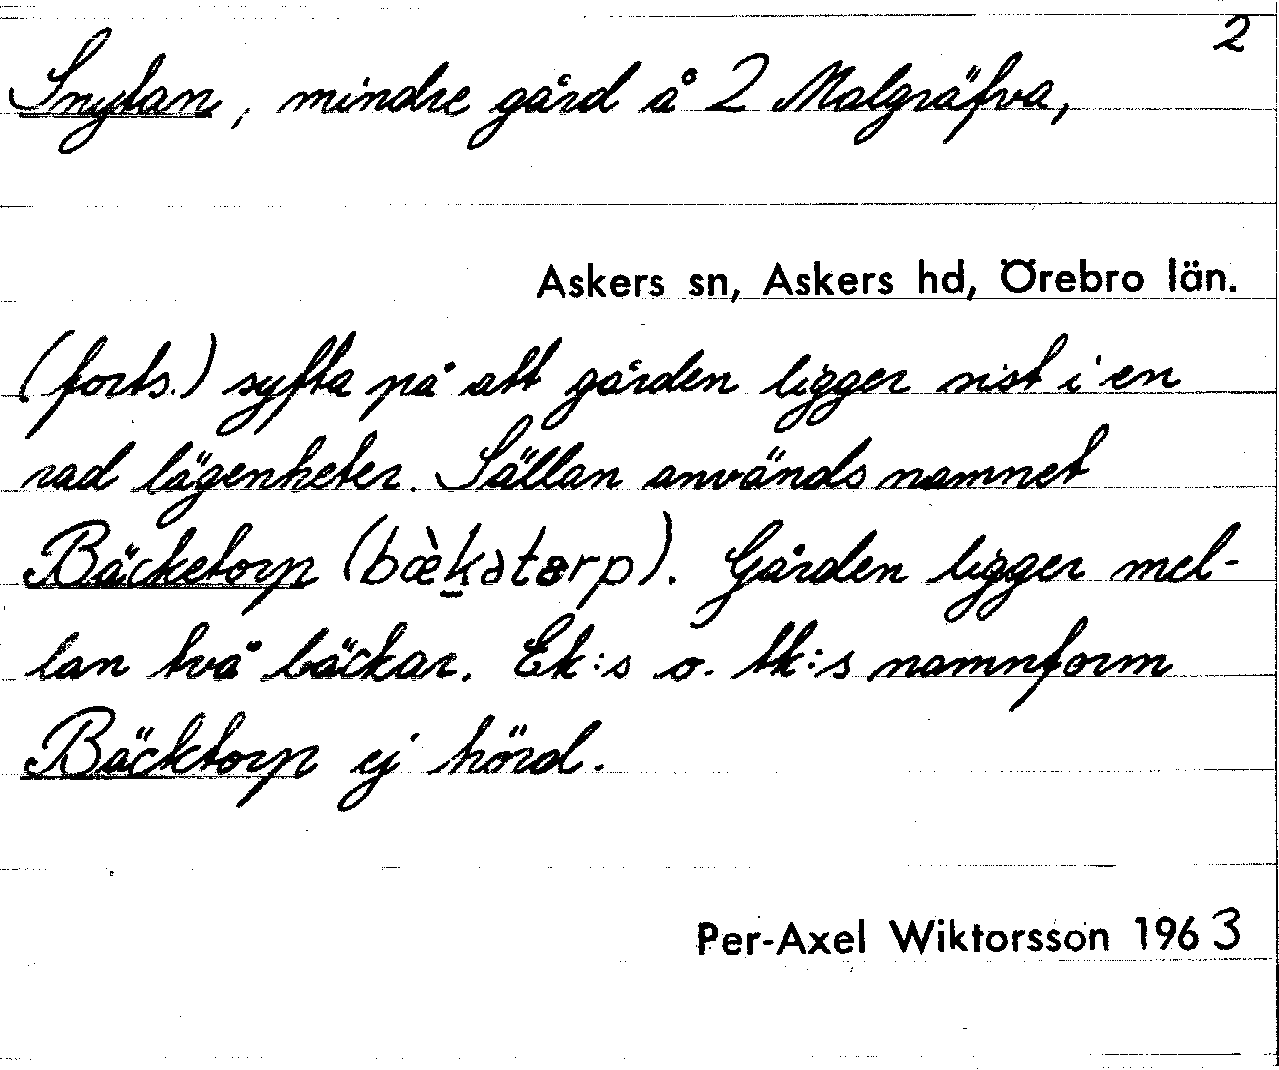 2
Snytan, mindre gård å 2 Malgräfva,
Askers sn, Askers hd, Örebro län.
(forts.) syfta på att gården ligger sist i en
rad lägenheter. Sällan används namnet
Bäcketorp (bæ̀k̠ətɵrp). Gården ligger mel-
lan två bäckar. Ek:s o. tk:s namnform
Bäcktorp ej hörd.
Per-Axel Wiktorsson 1963